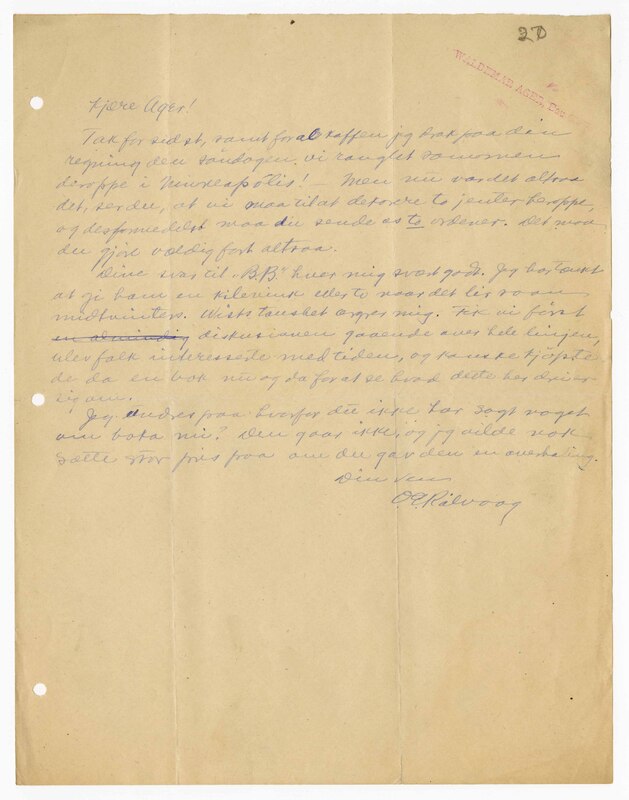 27
WALDEMAR AGER, 
Kjære Ager!
Tak for sidst, samt for al kaffen jeg drak paa din
regning den søndagen, vi ranglet sammen
deroppe i Minneapolis! — Men nu var det altsaa
det, ser du, at vi maa to jenter heroppe,
og desformedelst maa du sende os to ordener. Det maa
du gjøre vældig fort altsaa.
Dine svar til "B.B." huer mig svært godt. Jeg har tænkt
at gi ham en kilevink eller to naar det lir
midtvinters. Wists taushet ærgrer mig. Fik vi först
en almindig diskusionen gaaende over hele linjen,
blev folk interessede med tiden, og kanske kjøpte
de da en bok nu og da for at se hvad dette her
sig om.
Jeg undres paa hvorfor du ikke har sagt noget
om boka mi? Den gaar ikke, og jeg vilde nok
sætte stor pris paa om du gav den en overhaling.
Din ven
O.E. Rölvaag